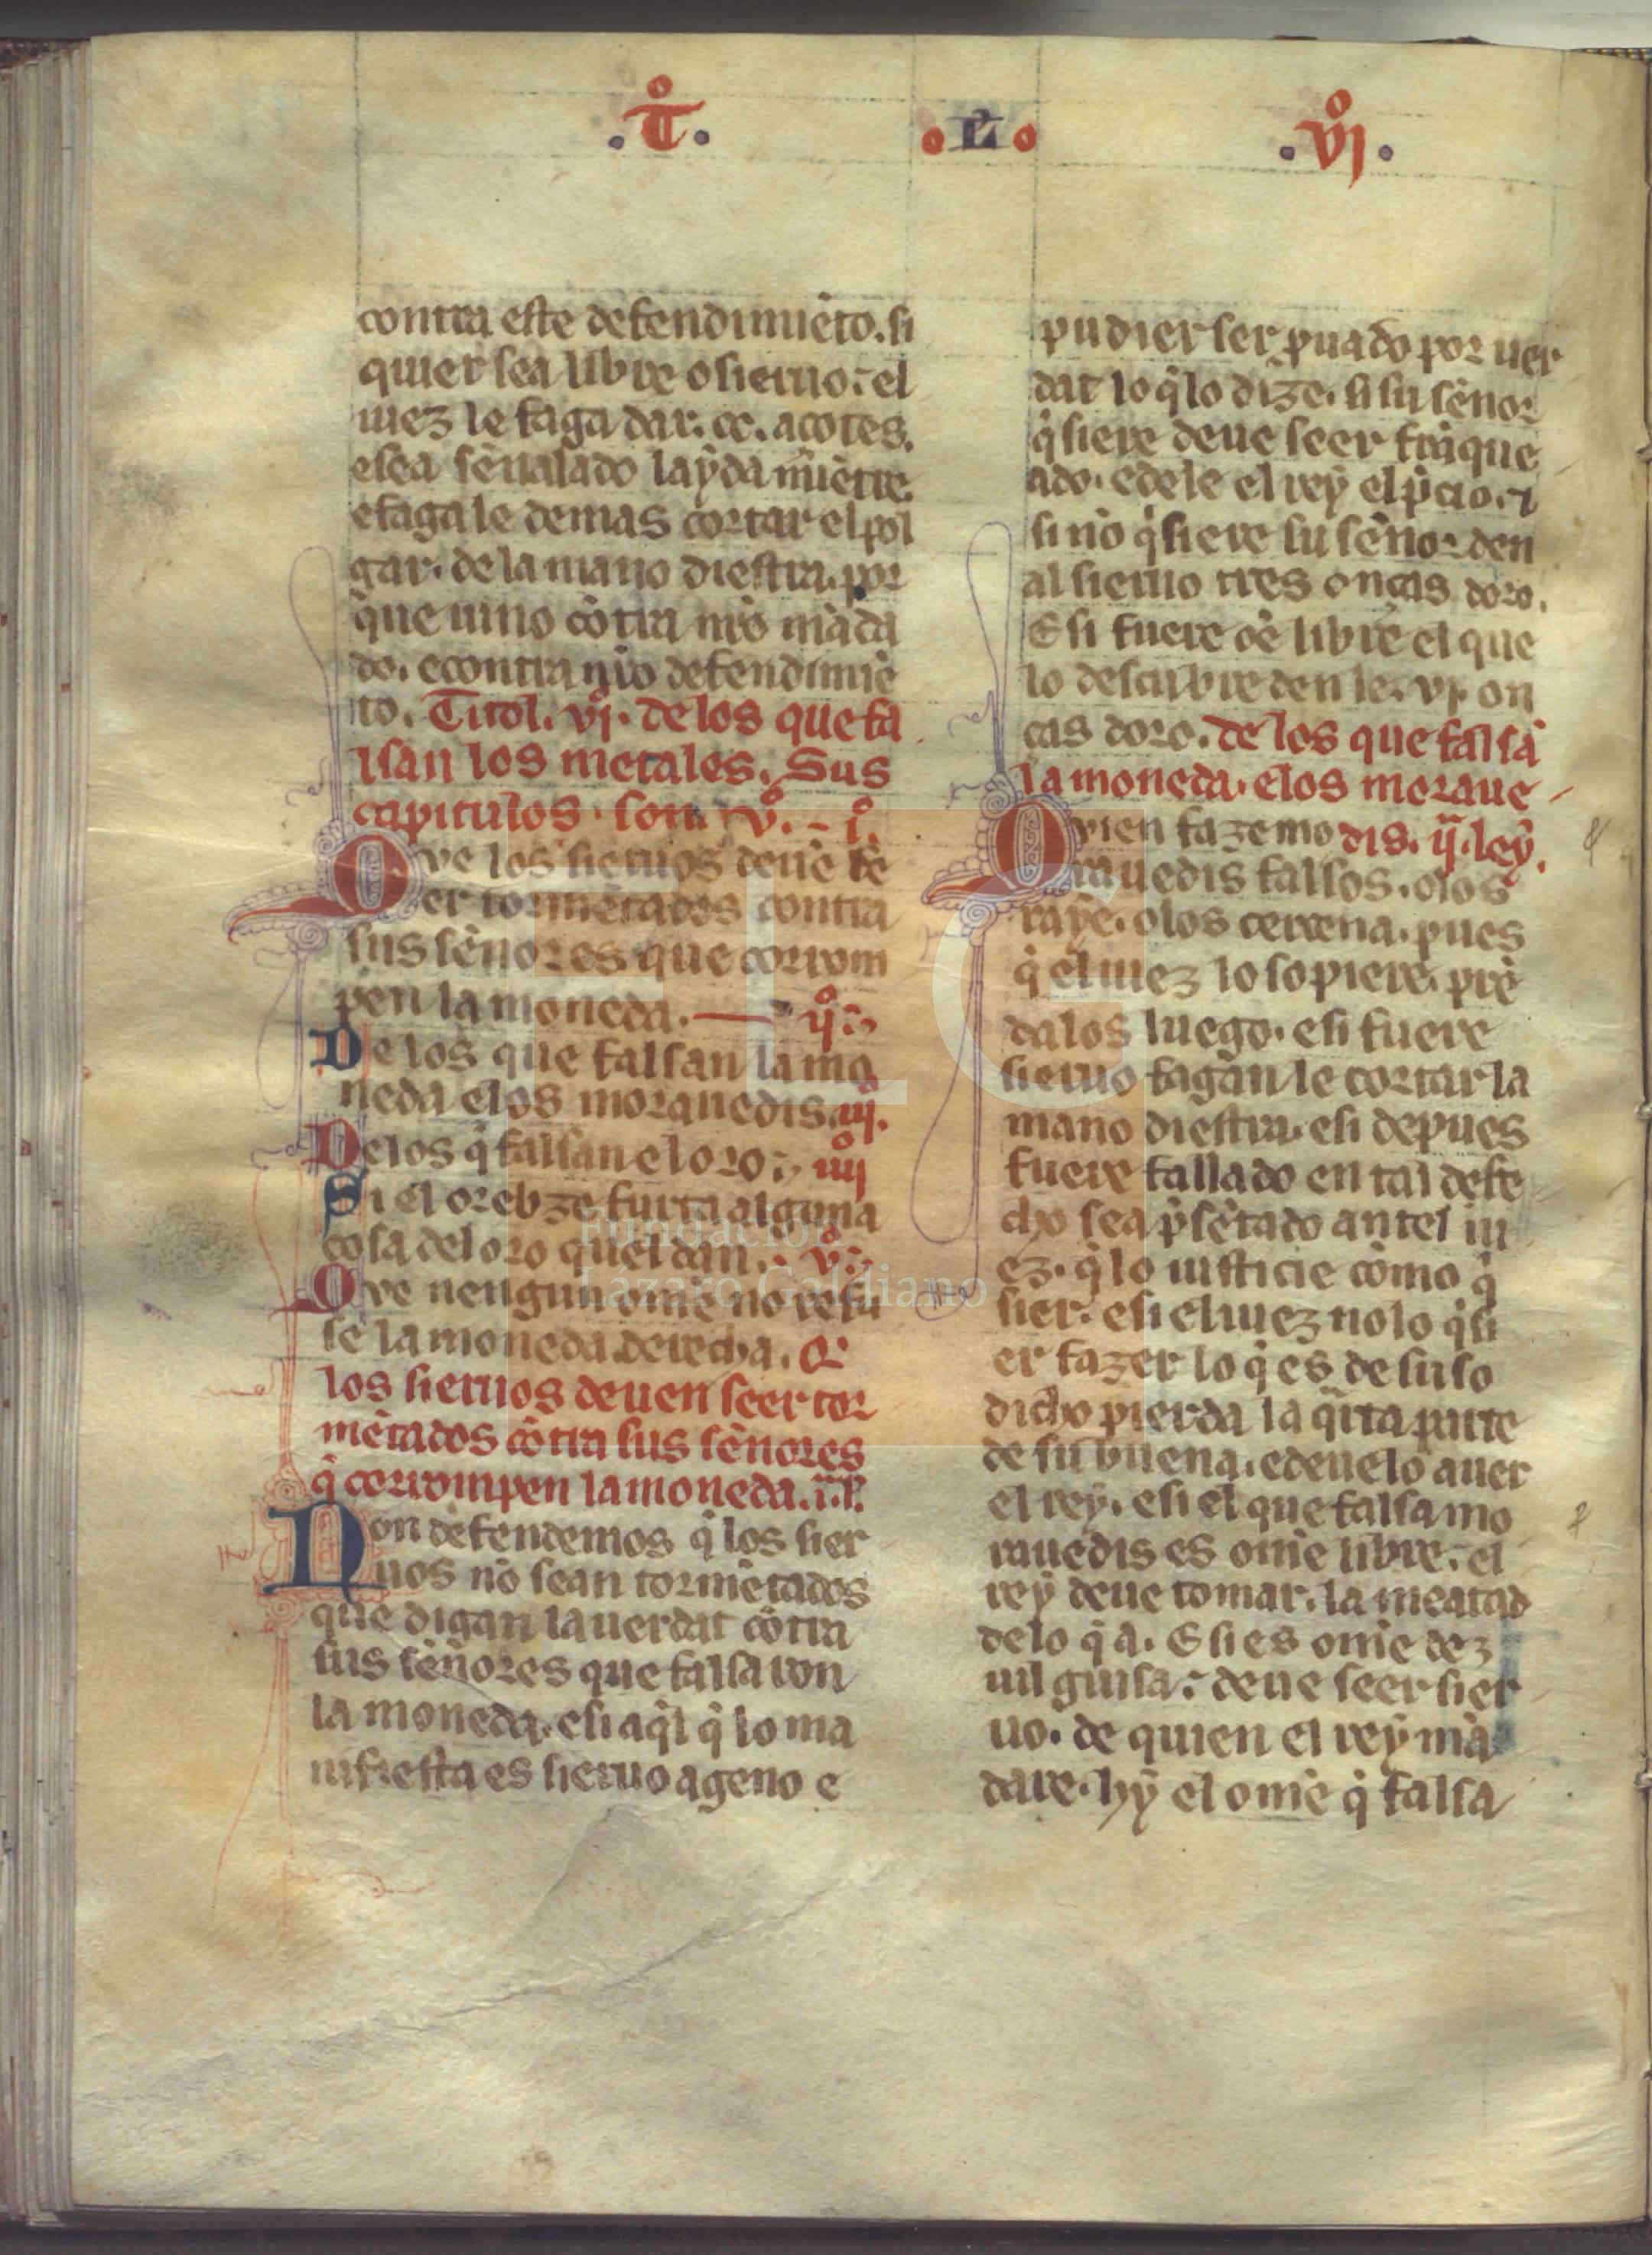 .T̊. .L. .v̊j.
contra este defendimiẽto. si
quier sea libre o sieruo: el
iuez le faga dar. cc. acotes.
e sea sẽnalado layda mĩetre.
e faga le demas cortar el pol
gar. de la mano diestra. por
que uino cõtra nr̃o mãda
do. e contra nr̃o defendimiẽ
to. Titol. vj̊. de los que fa
lsan los metales. Sus
capitulos son v̊. i̊.
Que los sieruos deuẽ se
er tormẽtados contra
sus sẽnores que corrom
pen la moneda. ij̊.
De los que falsan la mo
neda e los morauedis. iij̊.
De los q̃ falsan el oro. iiij̊
Si el orebze furta alguna
cosa del oro quel dan. v̊.
Que nengun omẽ no refu
se la moneda derecha. Q̃
los sieruos deuen seer tor
mẽtados cõtra sus sẽnores
q̃ corrompen la moneda. i. l.
Non defendemos q̃ los sier
uos nõ sean tormẽtados
que digan la uerdat cõtra
sus sẽñores que falsaron
la moneda. e si aq̃l q̃ lo ma
nifiesta es sieruo ageno e
pudier ser ꝓuado por uer
dat lo q̃ lo dize. si su sẽnor
q̃siere deue seer frãque
ado. e dele el rey el p̃cio. ⁊
si nõ q̃siere su sẽnor den
al sieruo tres oncas doro.
E si fuere oẽ libre el que
lo descubre den le. vj. on
cas doro. de los que falsã
la moneda. e los moraue
Quien faze mo dis. ij. ley.
rauedis falsos. o los
raye. o los cercena. pues
q̃ el iuez lo sopiere. prẽ
dalos luego. e si fuere
sieruo fagan le cortar la
mano diestra. e si depues
fuere fallado en tal defe
cho sea p̃sẽtado antel iu
ez. q̃ lo iusticie como q̃
sier. e si el iuez no lo q̃si
er fazer lo q̃ es de suso
dicho pierda la q̃rta parte
de su buena. e deuelo auer
el rey. e si el que falsa mo
rauedis es omẽ libre: el
rey deue tomar. la meatad
de lo q̃ a. E si es omẽ dez
uil guisa: deue seer sier
uo. de quien el rey mã
dare. hy el omẽ q̃ falsa
FLG
Fundación
Lázaro Galdiano